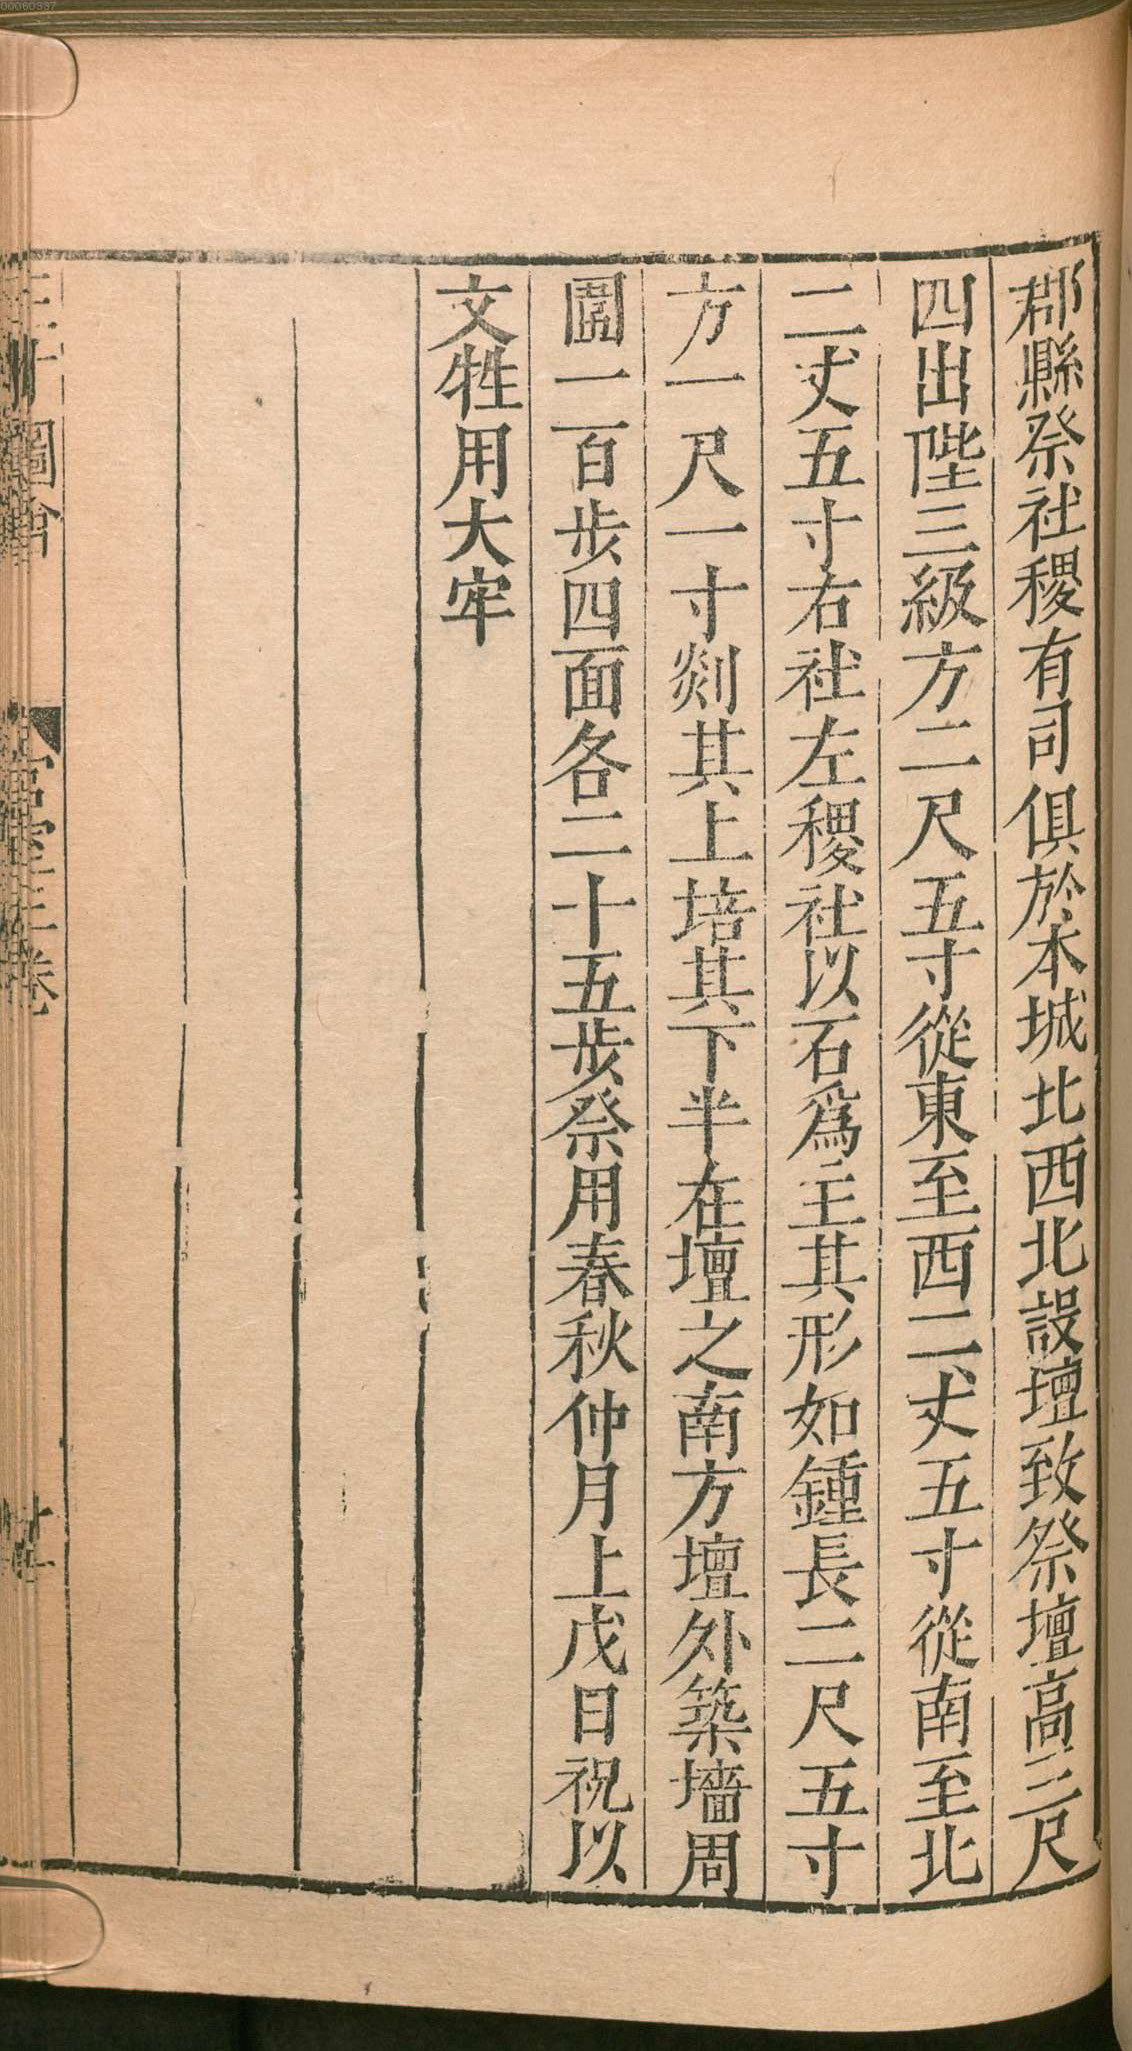 郡縣祭社稷有司俱於本城北西北設壇致祭壇高三尺
四出陛三級方二尺五寸從東至西二丈五寸從南至北
二丈五寸右社左稷社以石爲主其形如鍾長二尺五寸
方一尺一寸剡其上培其下半在壇之南方壇外築墻周
圍一百步四面各二十五步祭用春秋仲月上戊日祝以
文牲用大牢
圖會
宮室三卷
00060337